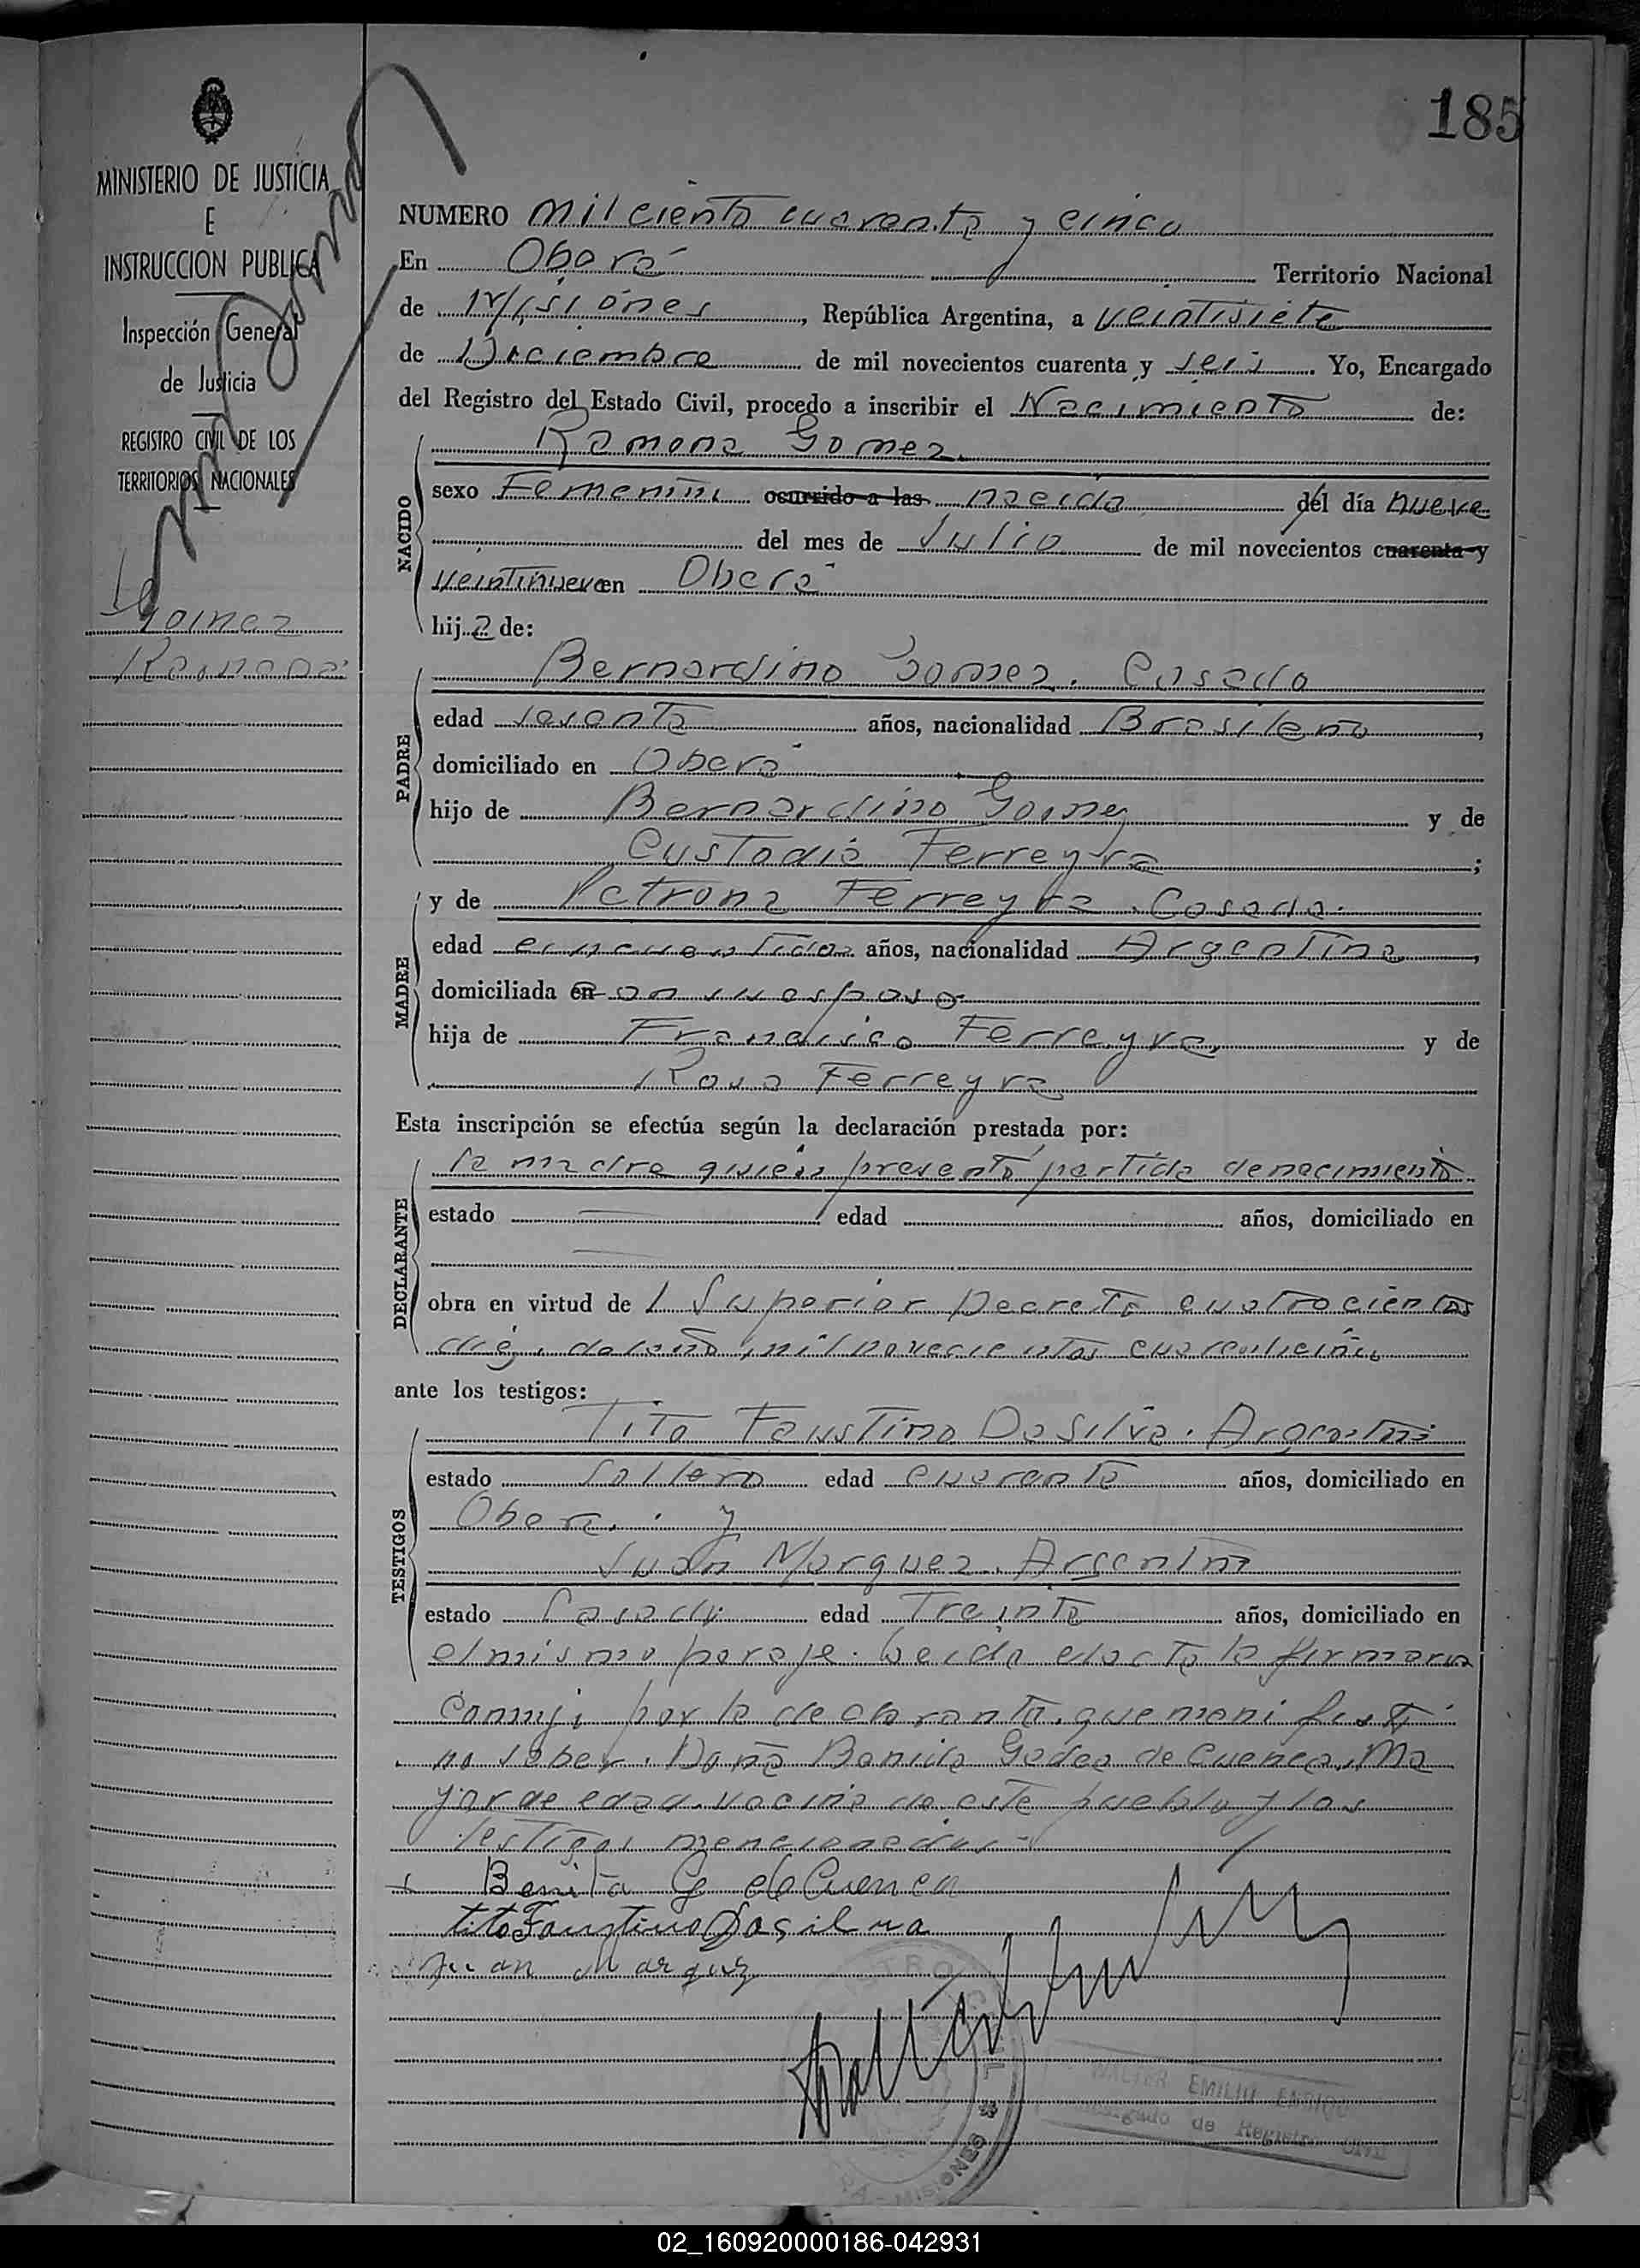 185
MINISTERIO DE JUSTICIA
E
INSTRUCCION PUBLICA
Inspección General
de Justicia
REGISTRO CIVIL DE LOS
TERRITORIOS NACIONALES
Gomez
Ramona
NUMERO mil ciento cuarenta y cinco
En Oberá Territorio Nacional
de Misiones, República Argentina, a veintisiete
de Diciembre de mil novecientos cuarenta y seis. Yo, Encargado
del Registro del Estado Civil, procedo a inscribir el Nacimiento de:
NACIDO
Ramona Gomez.
sexo Femenino ocurrido a las nacida del día nueve
del mes de Julio de mil novecientos cuarenta y
veintinueve en Oberá
hija de:
PADRE
Bernardino Gomez. Casado
edad sesenta años, nacionalidad Brasileno,
domiciliado en Oberá
hijo de Bernardino Gomez y de
Custodia Ferreyra;
MADRE
y de Petrona Ferreyra. Casada.
edad cincuentidos años, nacionalidad Argentina,
domiciliada en con su esposo.
hija de Francisco Ferreyra, y de
Rosa Ferreyra
Esta inscripción se efectúa según la declaración prestada por:
DECLARANTE
la madre quien presentó partida de nacimiento.
estado edad años, domiciliado en
obra en virtud de l Superior Decreto cuatrocientos
diez, del año mil novecientos cuarenticinco
ante los testigos:
TESTIGOS
Tito Faustino Da Silva. Argentino
estado Soltero edad cuarenta años, domiciliado en
Oberá. y
Juan Marquez. Argentino
estado Casado edad Treinta años, domiciliado en
el mismo paraje. Leida el acta la firmaron
conmigo por la declarante, que manifestó
no saber. Doña Benita Godea de Cuenca, Ma
yor de edad. vecina de este pueblo y los
testigos mencionados.-
Benita G de Cuenca
tito Faustino Dasilva
Juan Marquez
MISIONES
WALTER EMILIO
Encargado de Registro Civil
02_160920000186-042931